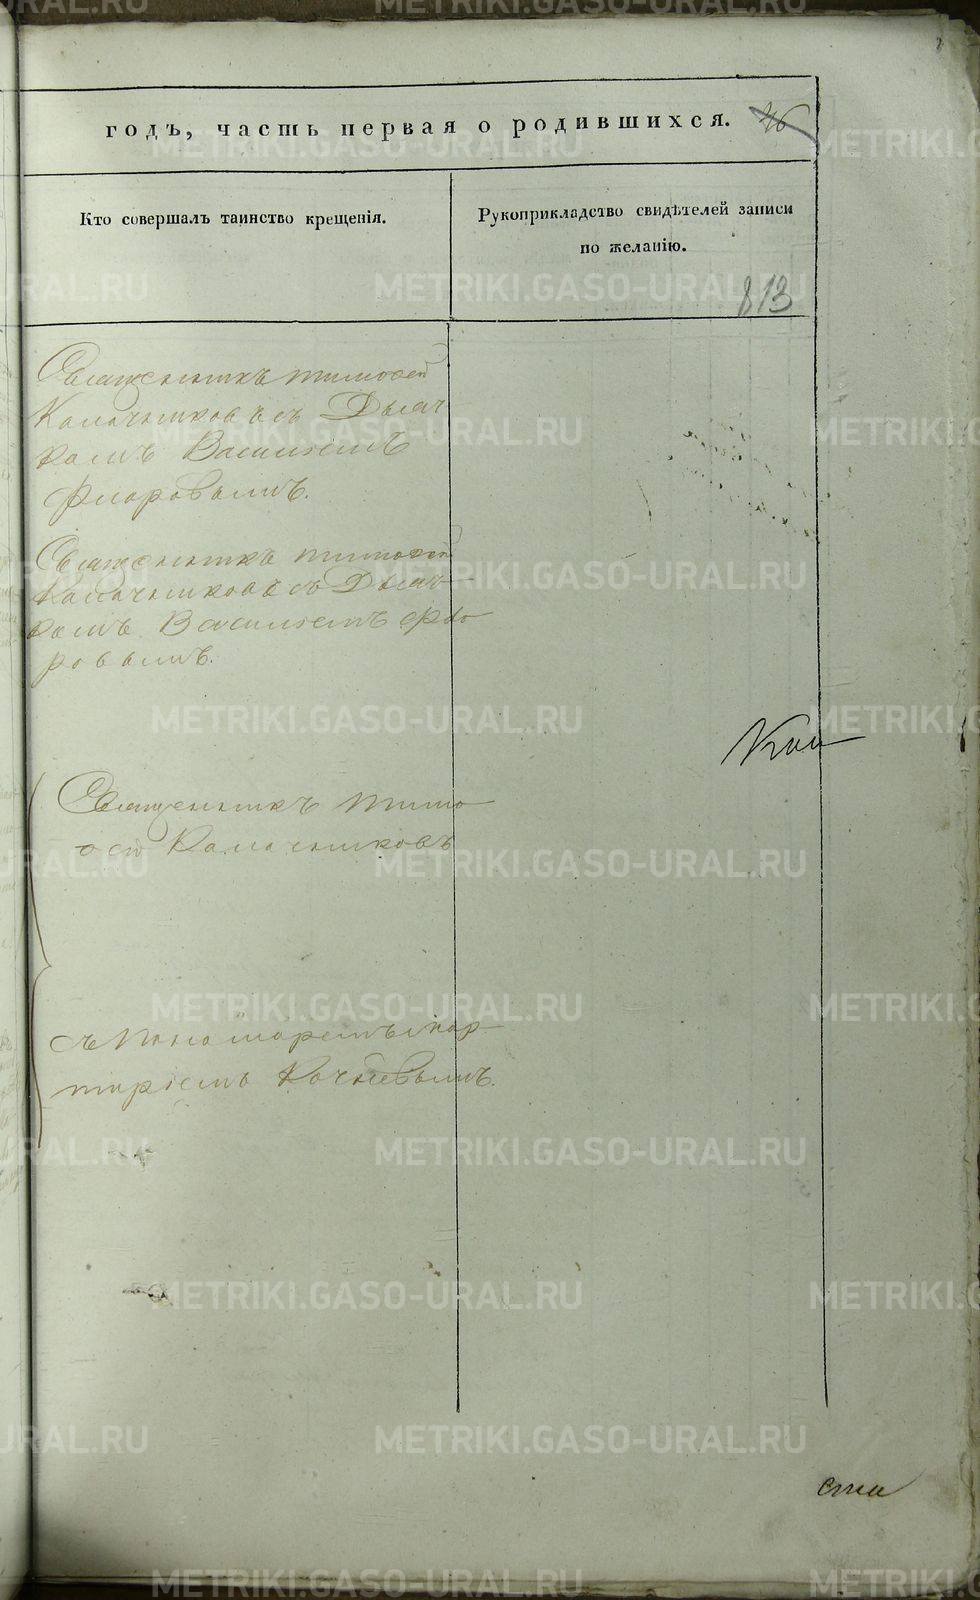 годъ, часть первая о родившихся. 46
Кто совершалъ таинство крещенія.
Рукоприкладство свидѣтелей записи
по желанію.
813
Священникъ Тимофей
Калачниковъ съ Дьяч
комъ Василіемъ
Флоровымъ.
Священникъ Тимофей
Калачниковъ съ Дьяч
комъ Василіемъ Фло
ровымъ.
Священникъ Тимо
фей Калачниковъ
съ Пономаремъ Пар
тиріемъ Кочневымъ.
METRIKI.GASO-URAL.RU